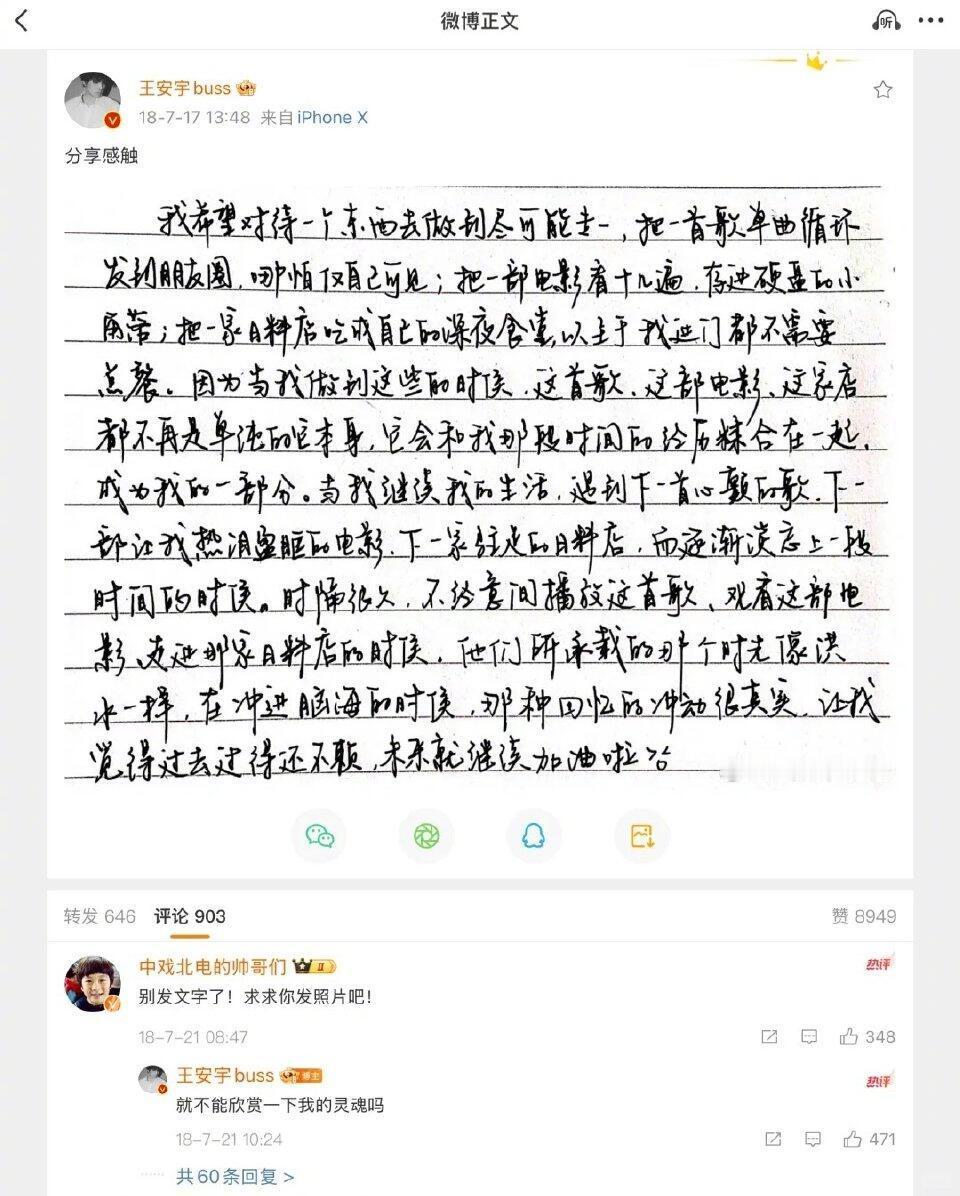 微博正文
听
王安宇buss
18-7-17 13:48 来自 iPhone X
分享感触
我希望对待一个东西去做到尽可能专一，把一首歌单曲循环
发到朋友圈，哪怕仅自己可见；把一部电影看十几遍，存进硬盘的小
角落；把一家日料店吃成自己的深夜食堂，以至于我进门都不需要
点餐。因为当我做到这些的时候，这首歌、这部电影、这家店
都不再是单纯的它本身，它会和我那段时间的经历糅合在一起，
成为我的一部分。当我继续我的生活，遇到下一首心颤的歌，下一
部让我热泪盈眶的电影，下一家驻足的日料店，而逐渐淡忘上一段
时间的时候。时隔很久，不经意间播放这首歌、观看这部电
影、走进那家日料店的时候，他们所承载的那个时光像洪
水一样，在冲进脑海的时候，那种回忆的冲动很真实，让我
觉得过去过得还不赖，未来就继续加油啦
转发 646 评论 903
赞 8949
中戏北电的帅哥们 II
热评
别发文字了！求求你发照片吧！
18-7-21 08:47
348
王安宇buss 博主
热评
就不能欣赏一下我的灵魂吗
18-7-21 10:24
471
共60条回复 >